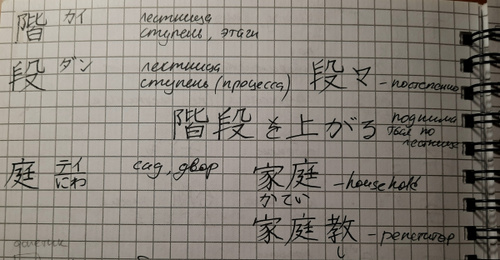 階 カイ лестница
ступень, этажи
段 ダン лестница
ступень (процесса) 段々 - постепенно
階段を上がる поднима
ться по
лестнице
庭 テイ にわ сад, двор 家庭 - household
かてい
家庭教 - репетитор
し